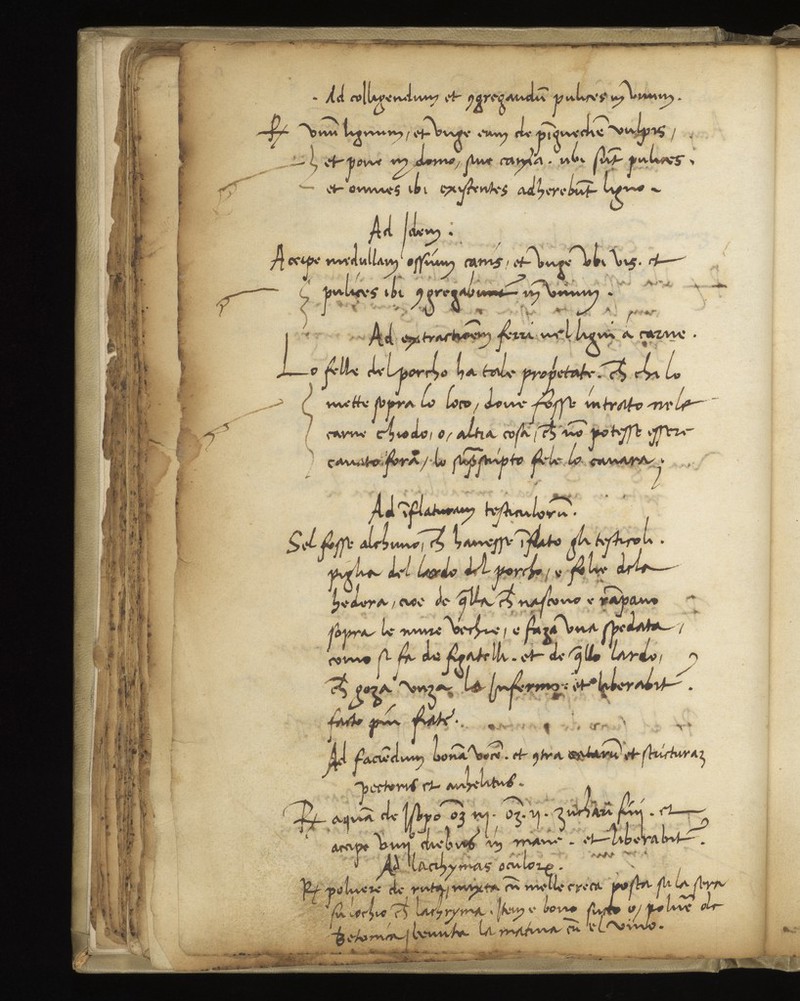 Ad colligendum et ꝯgregandū pulices in vnum.
℞ vnū lignum, et vnge eum de pīguedīe vulpis,
et pone in domo, siue camā. ubi sūt pulices.
et omnes ibi existentes adherebūt ligno.
Ad Idem:
Accipe medullam ossium canis, et vnge vbi vis. et
pulices ibi ꝯgregabunt in vnum.
Ad extractiōem ferri uel ligni á carne.
Lo felle del porcho ha tale propetate. ch̄ chi lo
mette sopra lo loco, doue fosse intrato nele
carne chiodo, o, altra cosa, ch̄ nō potesse essere
cauato forā, lo sup̄scripto fele lo cauara.
Ad īflaturam testiculorū.
Sel fosse alchuno, ch̄ hauesse īflato gli testicoli.
piglia del lardo del porcho, e folie dela
hedera, cioe de q̄lla ch̄ nascono e rāpano
sopra le mure vechie, e faza vna spedata,
como si fa de figatelli. et de q̄llo lardo,
ch̄ goza vnza lo Infermo: et liberabit.
facto piu fiate.
Ad faciēdum bonā vocē. et ꝯtra catarū et stricturaz
pectoris et anhelitus.
℞ aquā de Isopo ōz iij. ōz. ij. zuchari fini. et
accipe viiij diebus in mane. et liberabit.
Ad lachrymas oculorꝝ.
℞ poluere de ruta, mixta cū melle creca posta su la sera
su lochio ch̄ lachryma. Item e bono succo o, poluē de
Betonica beuuta la matina cū el vino.